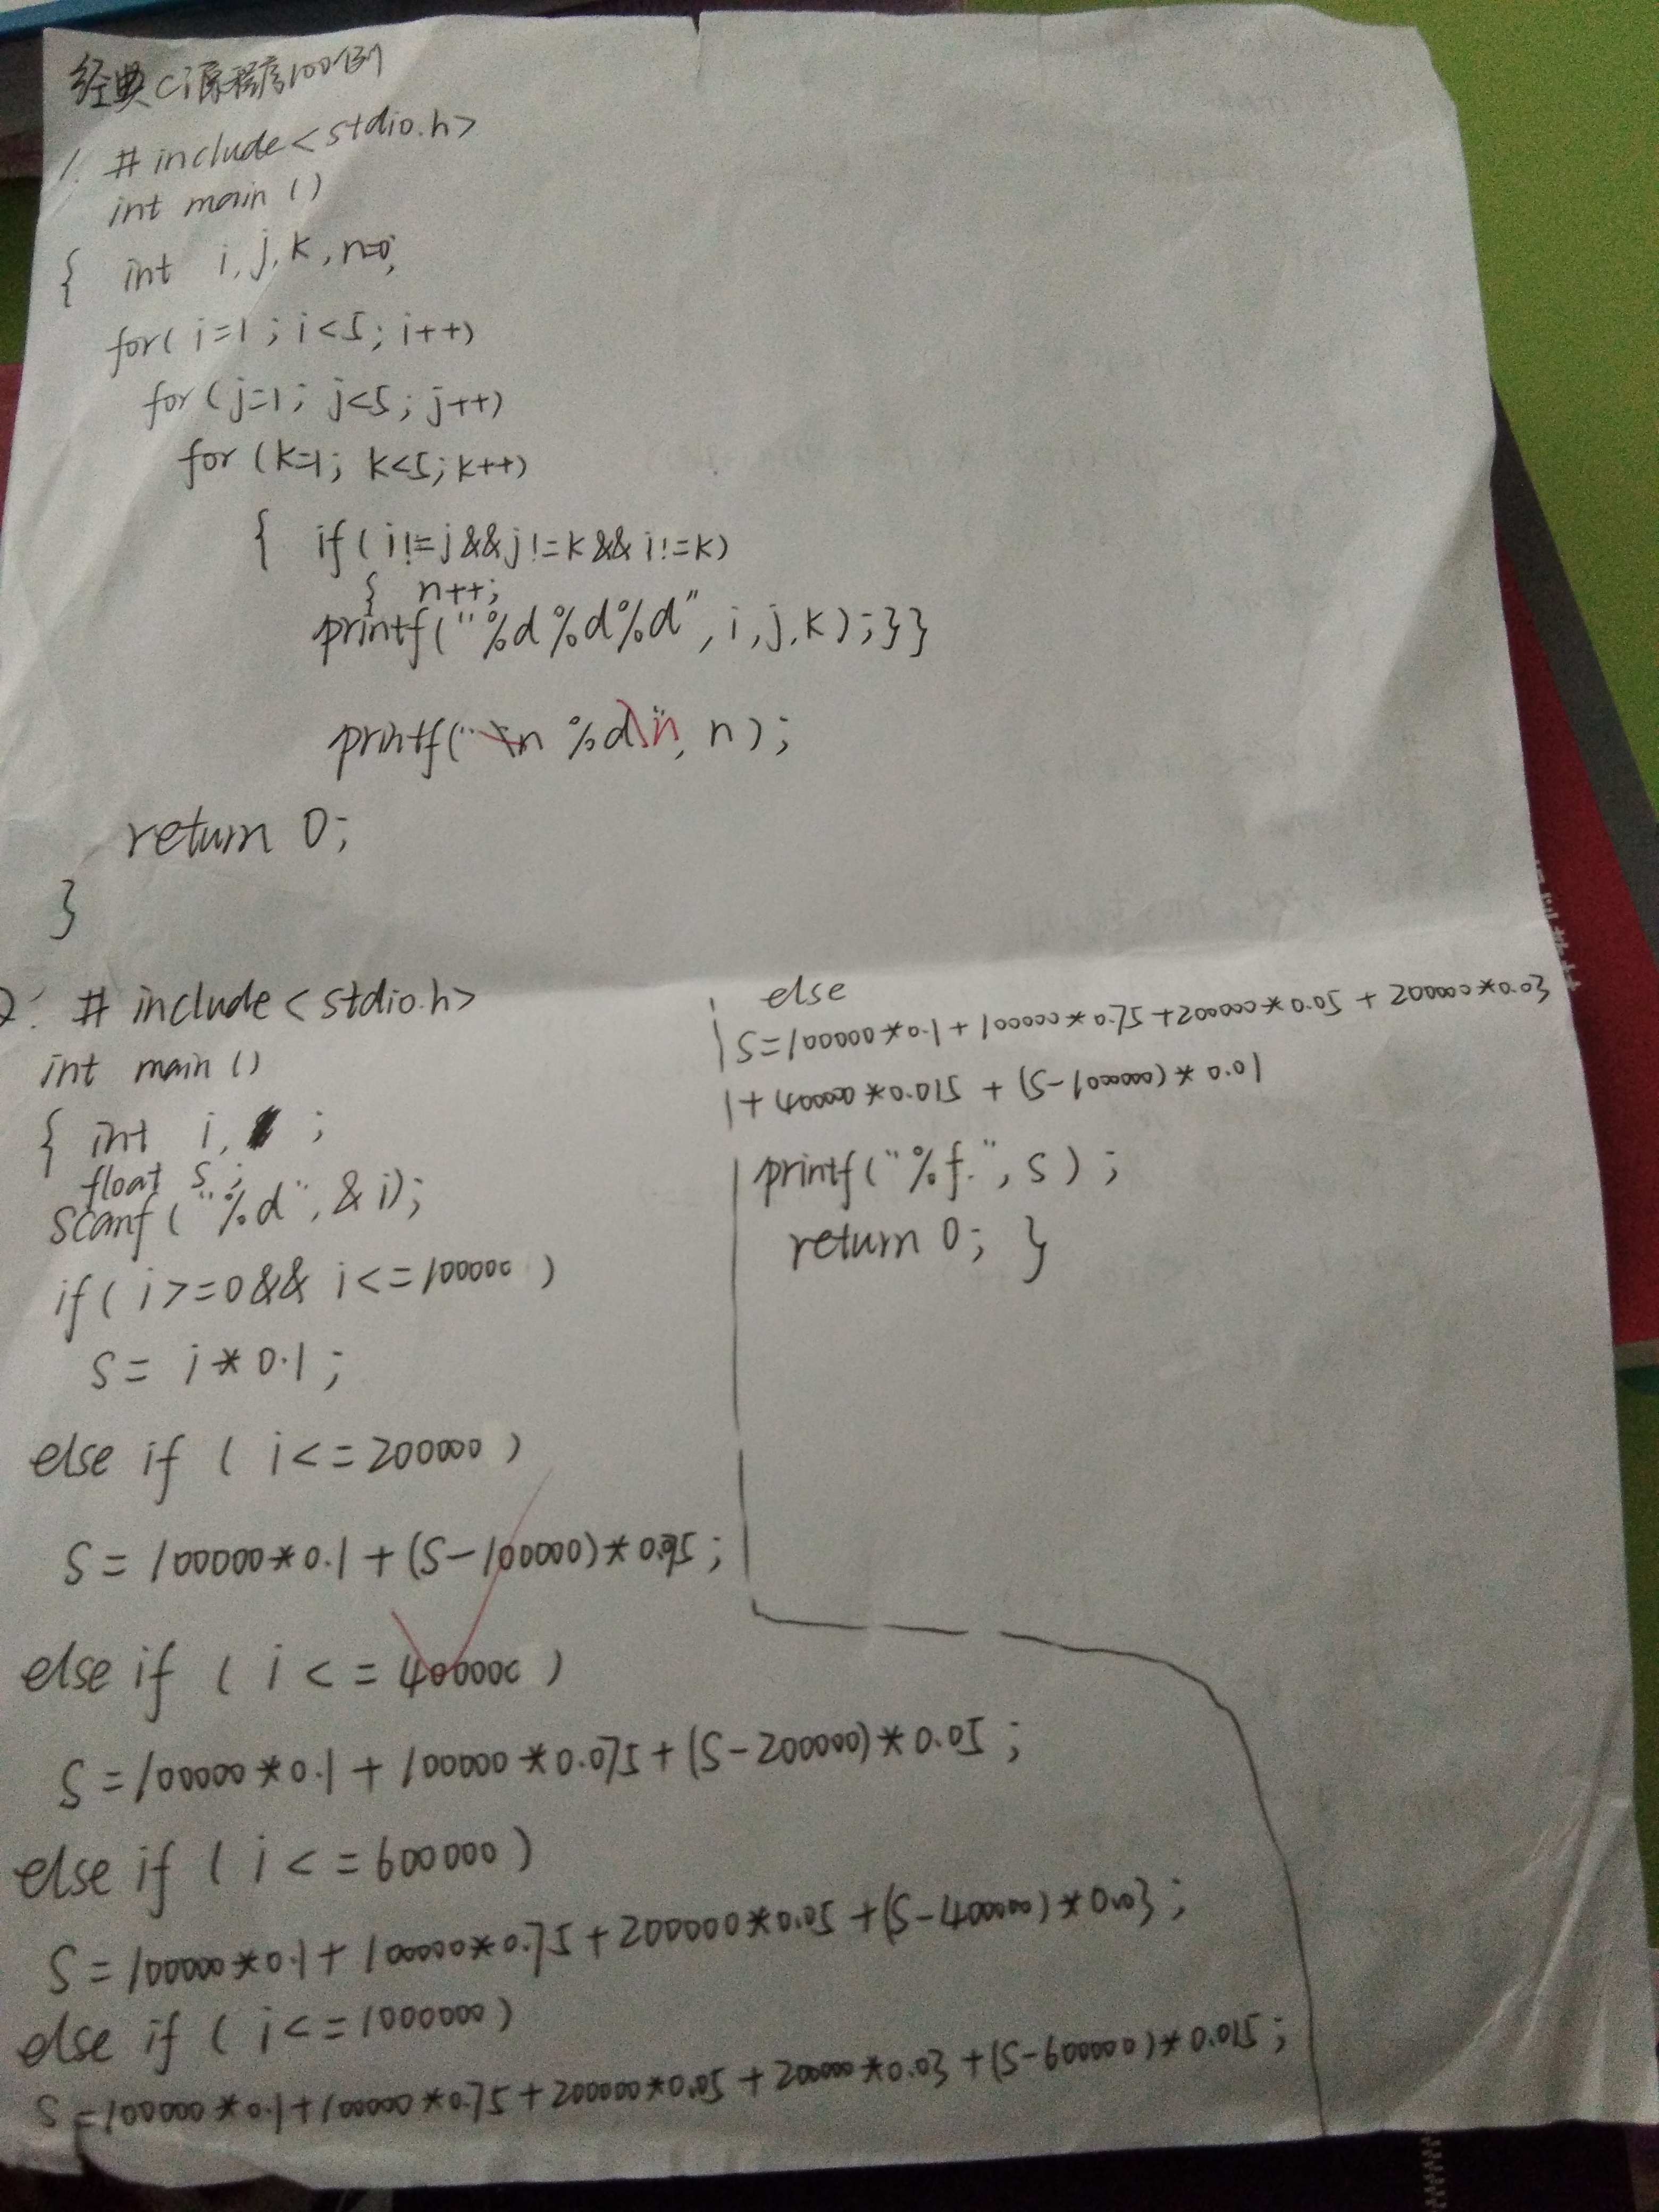 经典C源程序100例
1. #include<stdio.h>
int main ()
{ int i,j,k,n=0;
for( i=1 ; i<5; i++)
for (j=1; j<5; j++)
for (k=1; k<5; k++)
{ if( i!=j&&j!=k&&i!=k)
{ n++;
printf("%d%d%d", i,j,k);}}
printf("\n %d\n", n);
return 0;
}
2. #include<stdio.h>
int main ()
{ int i, ;
float s;
scanf("%d", &i);
if( i>=0&& i<=100000 )
S= i*0.1 ;
else if ( i<=200000 )
S= 100000*0.1+(S-100000)*0.75;
else if ( i<=400000 )
S=100000*0.1+100000*0.075+(S-200000)*0.05;
else if ( i<=600000 )
S=100000*0.1+100000*0.75+200000*0.05+(S-400000)*0.03;
else if ( i<=1000000 )
S=100000*0.1+100000*0.75+200000*0.05+200000*0.03+(S-600000)*0.015;
else
S=100000*0.1+100000*0.75+200000*0.05+200000*0.03
+400000*0.015+(S-1000000)*0.01
printf("%f.", s);
return 0; }